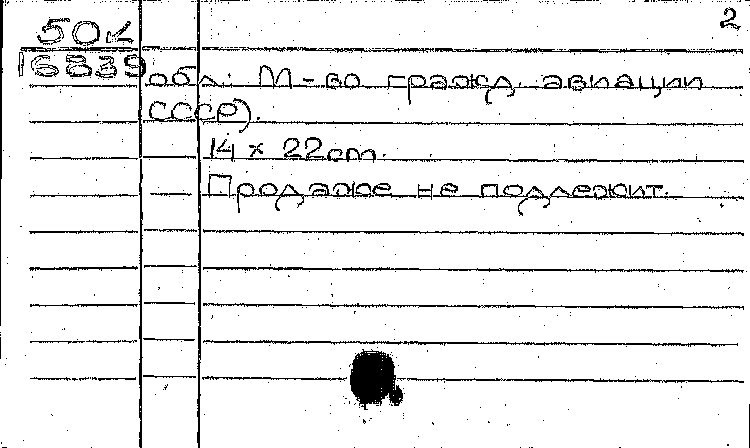 2
50К
16839
обл.: М-во гражд. авиации
СССР).
14 х 22 cm.
— Продаже не подлежит.